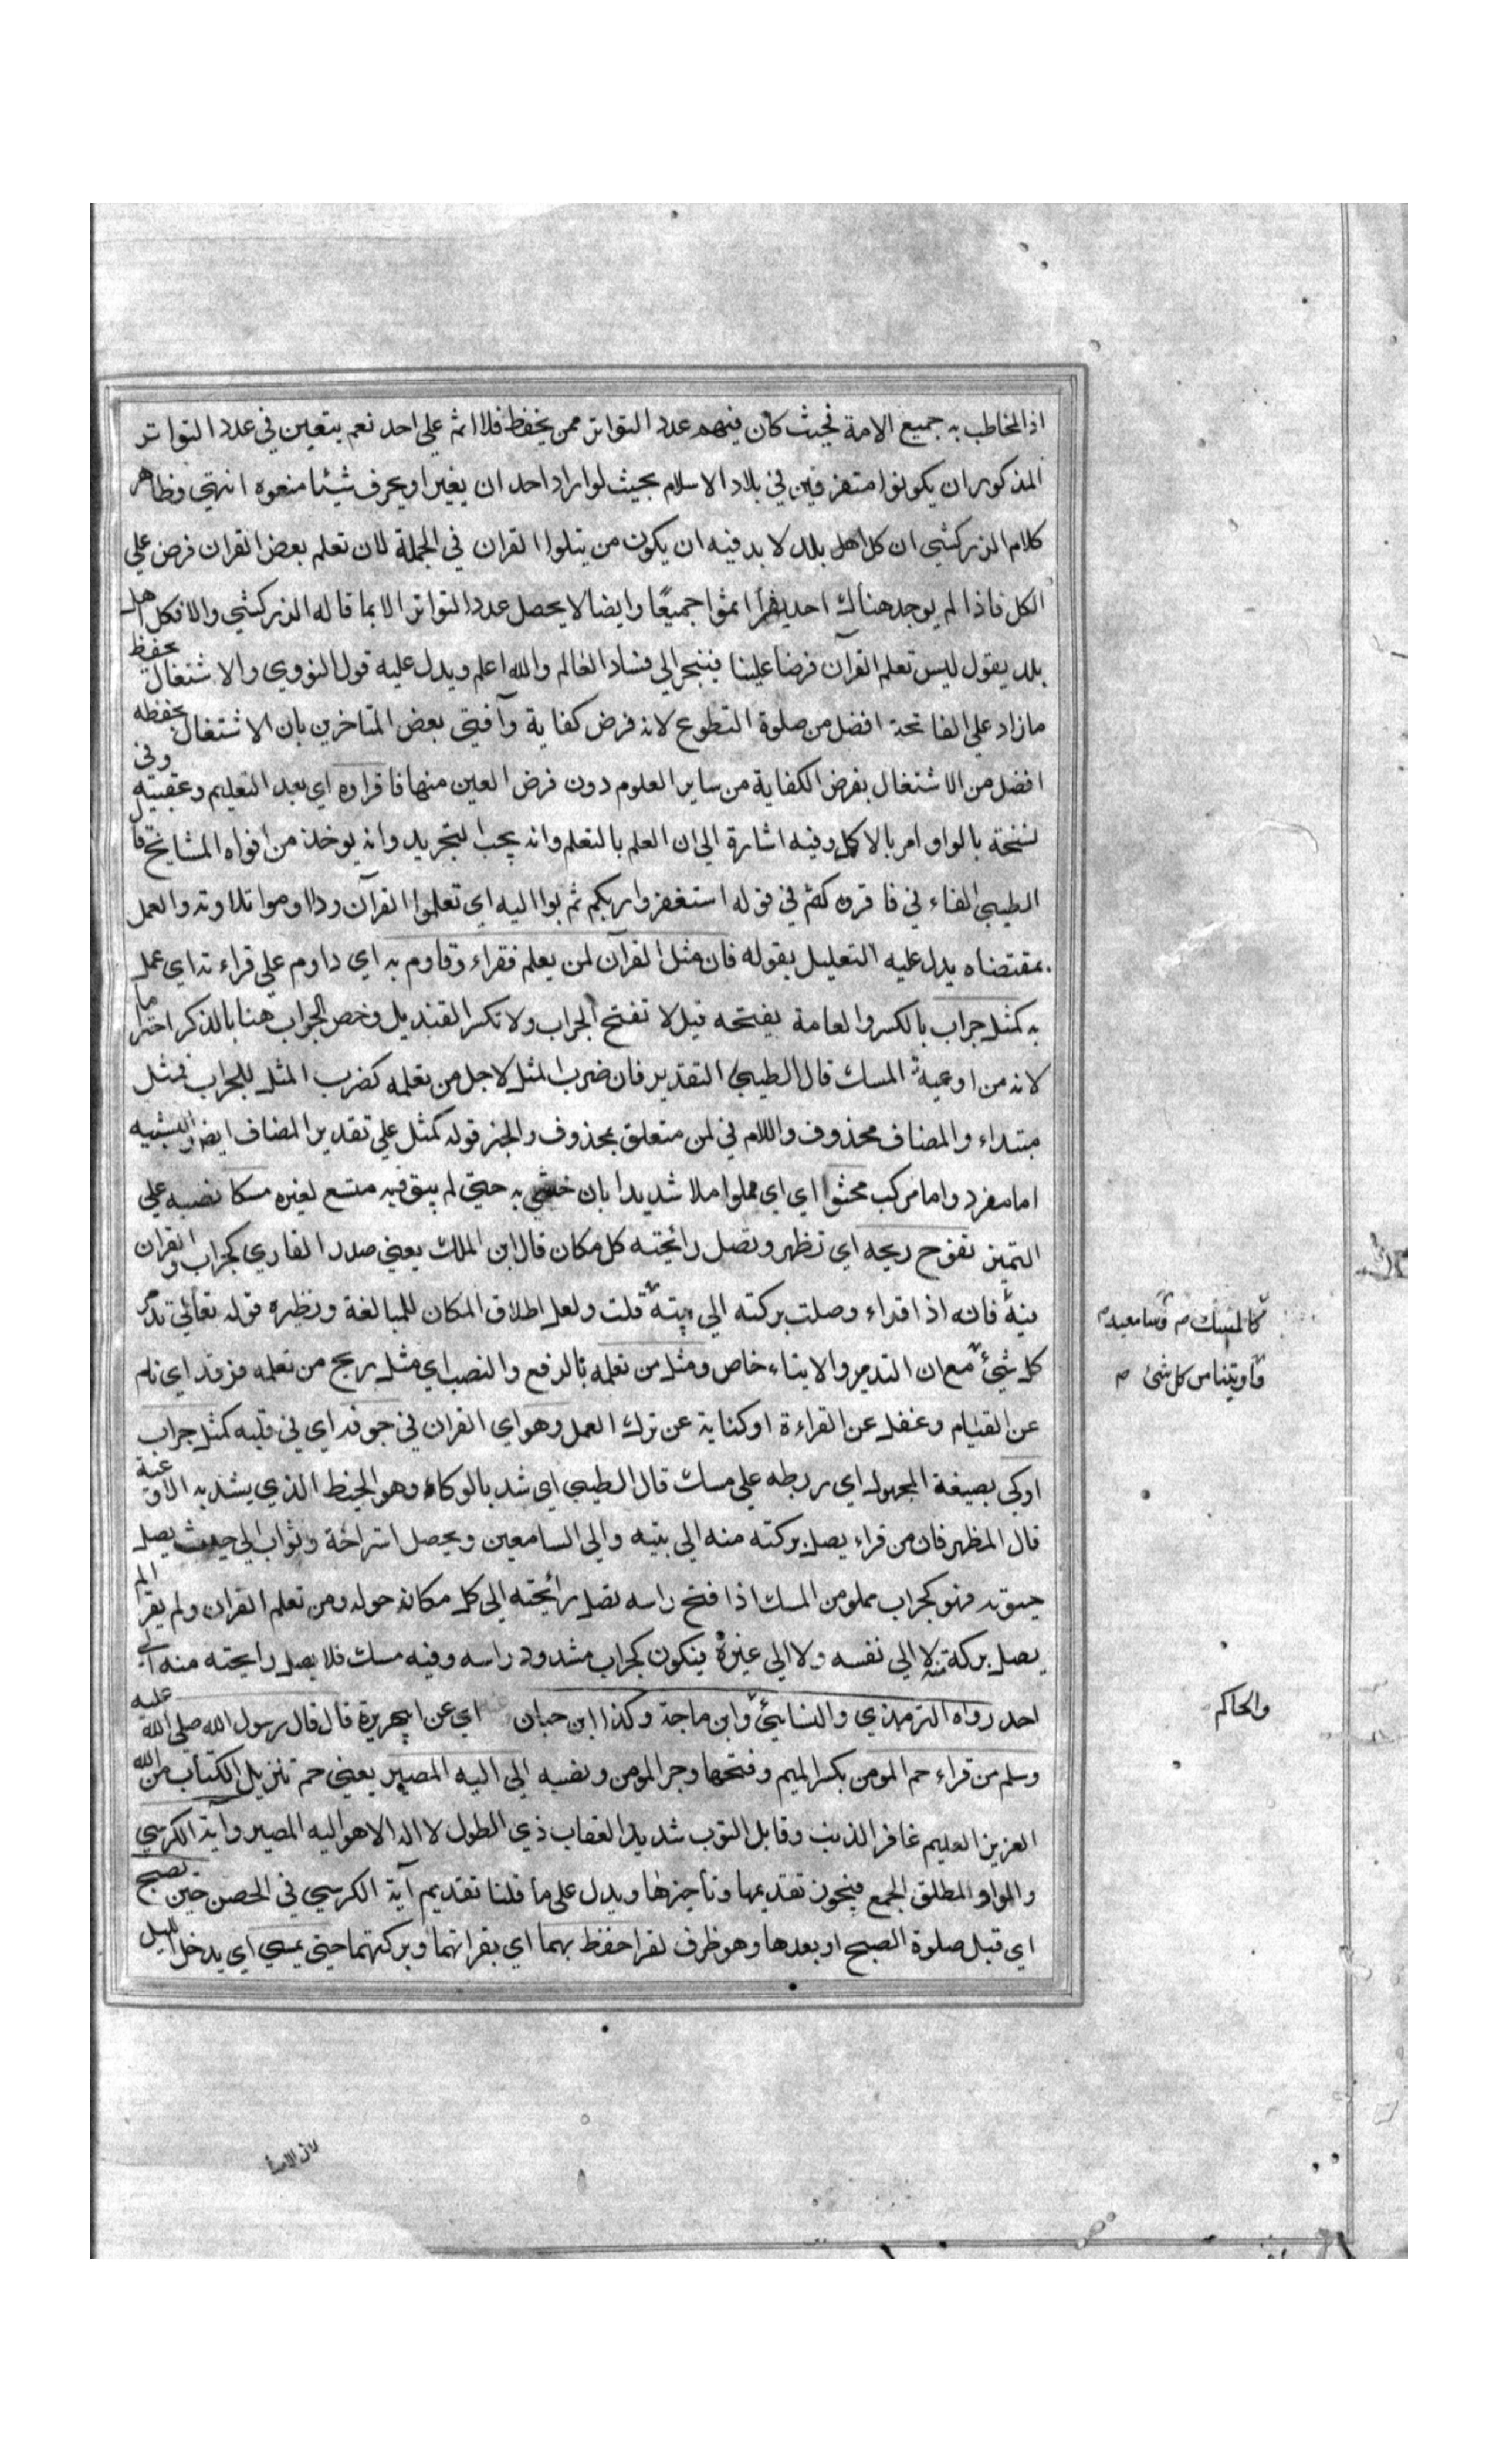 اذ المخاطب به جميع الامة فحيث كان فيهم عدد التواتر ممن يحفظ فلا اثم على احد نعم يتعين في عدد التواتر
المذكور ان يكونوا متفرقين في بلاد الاسلام بحيث لو اراد احد ان يغير او يحرف شيئا منعوه انتهى وظاهر
كلام الزركشي ان كل اهل بلد لا بد فيه ان يكون من يتلوا القران في الجملة لان تعلم بعض القران فرض على
الكل فاذا لم يوجد هناك احد يقرأ اثموا جميعًا وايضا لا يحصل عدد التواتر الا بما قاله الزركشي والا فكل اهل
بلد يقول ليس تعلم القرآن فرضا علينا فينجر الى فساد العالم والله اعلم ويدل عليه قول النووي والاشتغال بحفظ
مازاد على الفاتحة افضل من صلوة التطوع لانه فرض كفاية وآفتى بعض المتاخرين بان الاشتغال بحفظه
افضل من الاشتغال بفرض الكفاية من ساير العلوم دون فرض العين منها فاقراوه اي بعد التعليم وعقبيته وفي
نسخة بالواو امر بالاكل وفيه اشارة الى ان العلم بالتعلم وانه يجب التجويد وانه يوخذ من افواه المشايخ قال
الطيبي الفاء في فاقروه كثم في قوله استغفروا ربكم ثم بوا اليه اي تعلموا القرآن وداوموا تلاوته والعمل
بمقتضاه يدل عليه التعليل بقوله فان مثل القرآن لمن يعلم فقراء وقاوم به اي داوم على قراءته اي عمل
به كمثل جراب بالكسر والعامة يفتحه قيل لا تفتح الجراب ولا تكسر القنديل وخص الجراب هنا بالذكر احتراما
لانه من اوعية المسك قال الطيبي التقدير فان ضرب المثل لاجل من تعلمه كضرب المثل للجراب فمثل
مبتداء والمضاف محذوف واللام في لمن متعلق بمحذوف والخبر قوله كمثل على تقدير المضاف ايضا والتشبيه
اما مفرد واما مركب محشوا اي اي مملوا ملا شديدا بان حشي به حتى لم يبق فيه متسع لغيره مسكا نصبه على
التمييز تفوح ريحه اي تظهر وتصل رائحته كل مكان قال ابن الملك يعني صدر القاري كجراب والقران
فيه فانه اذا قراء وصلت بركته الى بيته قلت ولعل اطلاق المكان للمبالغة ونظيره قوله تعالى تدمر
كل شيء مع ان التدمير والايتاء خاص ومثل من تعلمه بالرفع والنصب اي مثل ريح من تعلمه فرقد اي نام
عن القيام وغفل عن القراءة او كناية عن ترك العمل وهو اي القران في جوفه اي في قلبه كمثل جراب
اوكى بصيغة المجهول اي ربطه على مسك قال الطيبي اي شد بالوكاء وهو الخيط الذي يشد به الاوعية
قال المظهر فان من قراء يصل بركته منه الى بيته والى السامعين ويحصل استراحة وثواب الى حيث يصل
صوته فهو كجراب مملو من المسك اذا فتح راسه تصل رائحته الى كل مكان حوله ومن تعلم القران ولم يقرا لم
يصل بركة منه لا الى نفسه ولا الى غيره فيكون كجراب مشدود راسه وفيه مسك فلا يصل رائحته منه الى
احد رواه الترمذي والنسائي وابن ماجة وكذا ابن حبان اي عن ابي هريرة قال قال رسول الله صلى الله عليه
وسلم من قراء حم المومن بكسر الميم وفتحها وجر المومن ونصبه الى اليه المصير يعني حم تنزيل الكتاب من الله
العزيز العليم غافر الذنب وقابل التوب شديد العقاب ذي الطول لا اله الا هو اليه المصير وآية الكرسي
والواو لمطلق الجمع فيجوز تقديمها وتاخيرها ويدل على ما قلنا تقديم آية الكرسي في الحصن حين تصبح
اي قبل صلوة الصبح او بعدها وهو ظرف لقرا حفظ بهما اي بقراتهما وبركتهما حتى يمسي اي يدخل الليل
كالمسك م وسامعيه م
واوتينا من كل شئ م
والحاكم